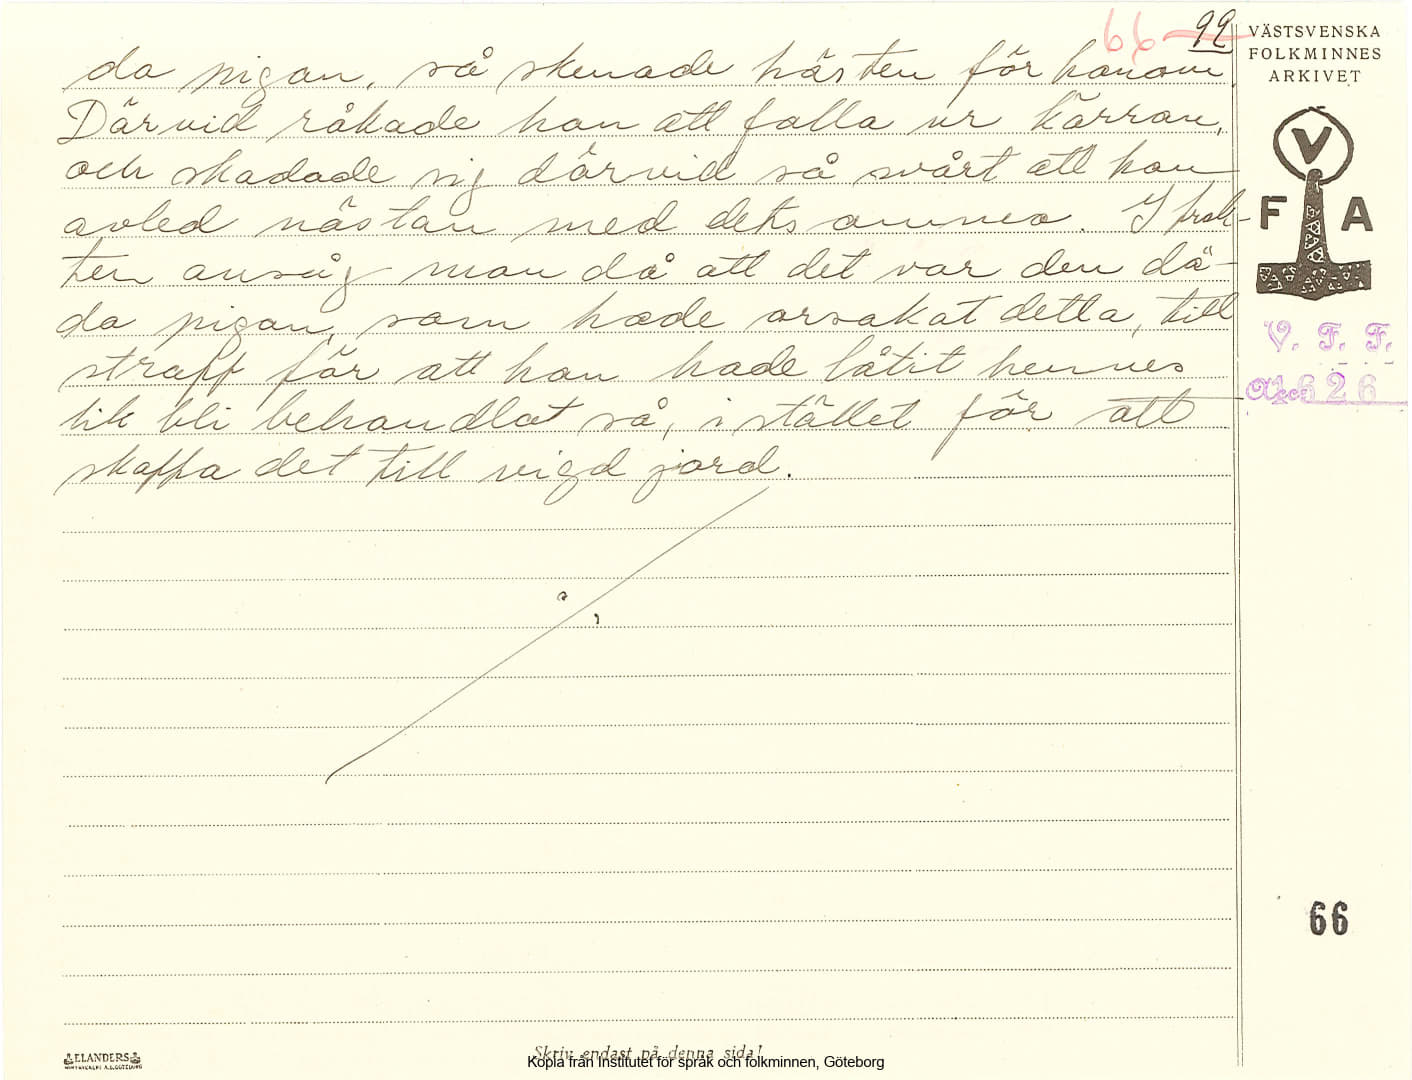 66 99
VÄSTSVENSKA
FOLKMINNES
ARKIVET
da pigan, så skenade hästen för honom.
Därvid råkade han att falla ur kärran,
och skadade sig därvid så svårt att han
avled nästan med detsamma. I trak-
ten ansåg man då att det var den dö-
da pigan, som hade orsakat detta, till
straff för att han hade låtit hennes
lik bli behandlat så, i stället för att
skaffa det till vigd jord.
V
F A
V. F. F.
Acc. 1626
66
ELANDERS
Skriv endast på denna sida!
Kopia från Institutet för språk och folkminnen, Göteborg